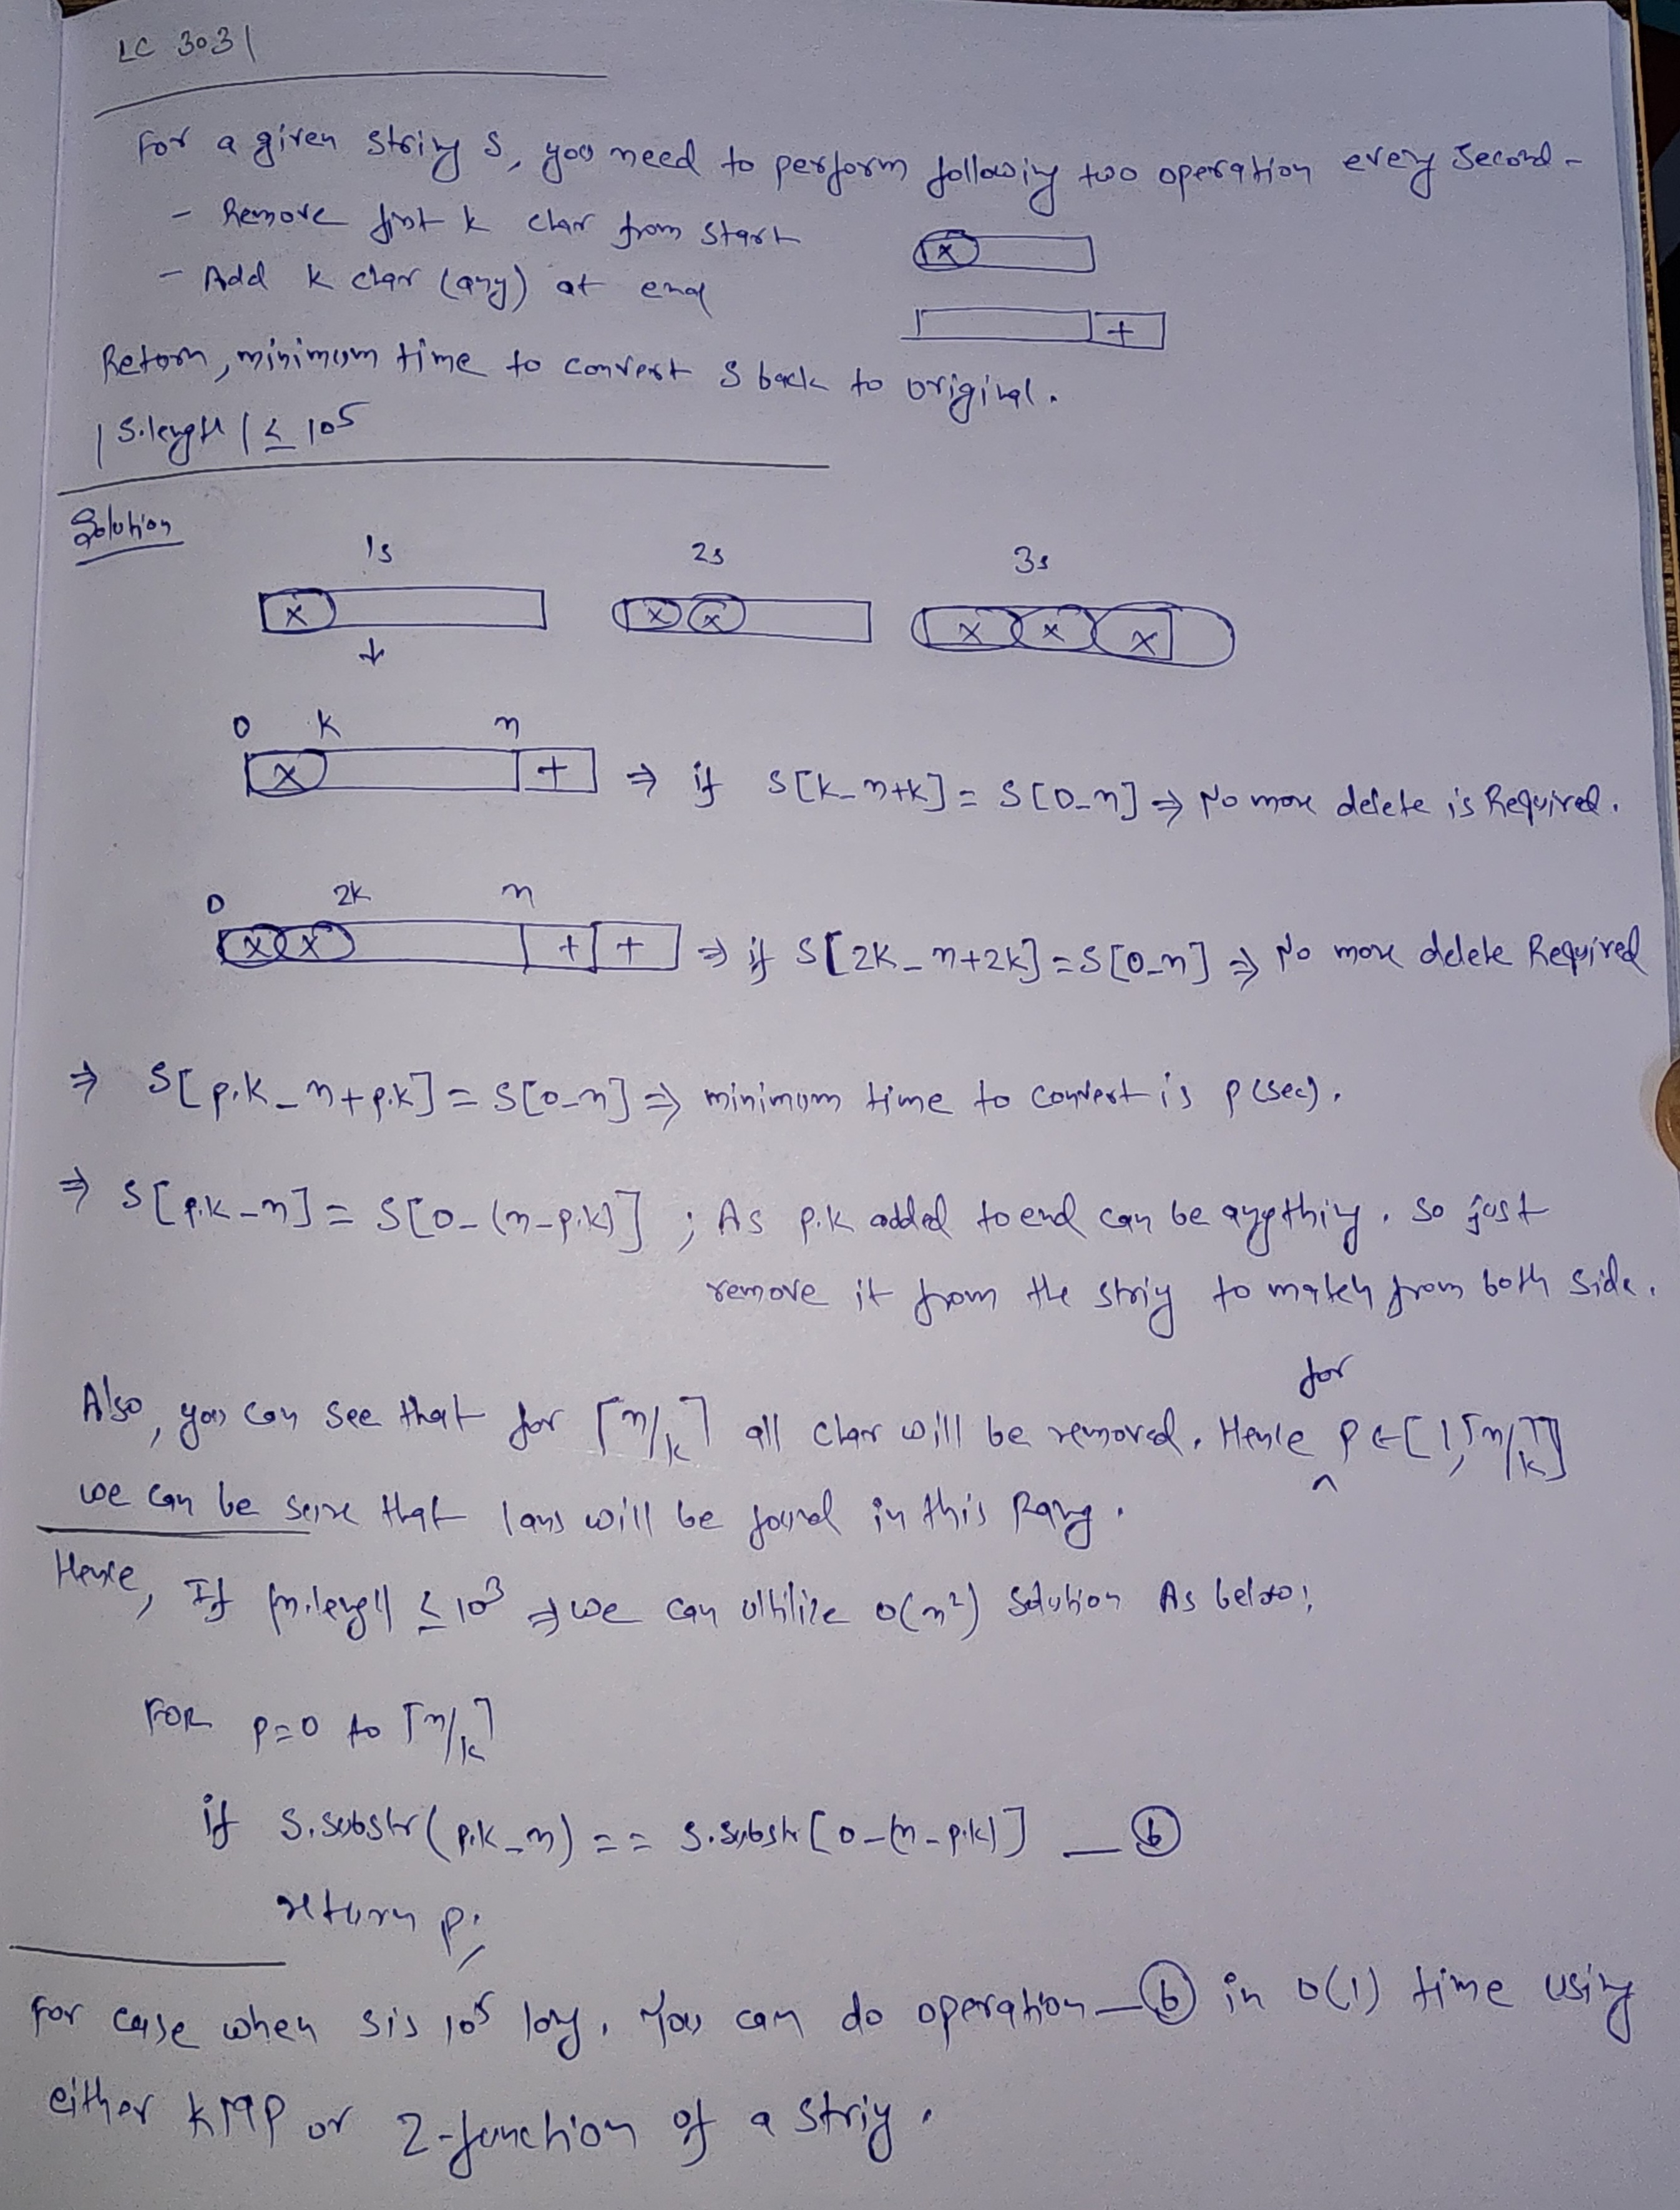 LC 3031
For a given string S, you need to perform following two operation every second -
- Remove first k char from start
x
- Add k char (any) at end
+
Return, minimum time to convert S back to original.
| S.length | ≤ 10^5
Solution
1s 2s 3s
x x x x x x
0 k n
x + ⇒ if S[k_n+k] = S[0_n] ⇒ No more delete is Required.
0 2k n
x x + + ⇒ if S[2k_n+2k] = S[0_n] ⇒ No more delete Required
⇒ S[p.k_n+p.k] = S[0_n] ⇒ minimum time to convert is p(sec).
⇒ S[p.k_n] = S[0_(n-p.k)] ; As p.k added to end can be anything. so just
remove it from the string to match from both side.
Also, you can see that for ⌈n/k⌉ all char will be removed. Hence for p ∈ [1, ⌈n/k⌉]
we can be sure that 1ans will be found in this Rang.
Hence, If |n.length| ≤ 10^3 ⇒ we can utilize o(n^2) solution As below;
FOR p=0 to ⌈n/k⌉
if S.substr(p.k_n) == S.substr[0_(n-p.k)] _ (b)
return p;
For case when s is 10^5 long. You can do operation _ (b) in o(1) time using
either KMP or Z-function of a string.